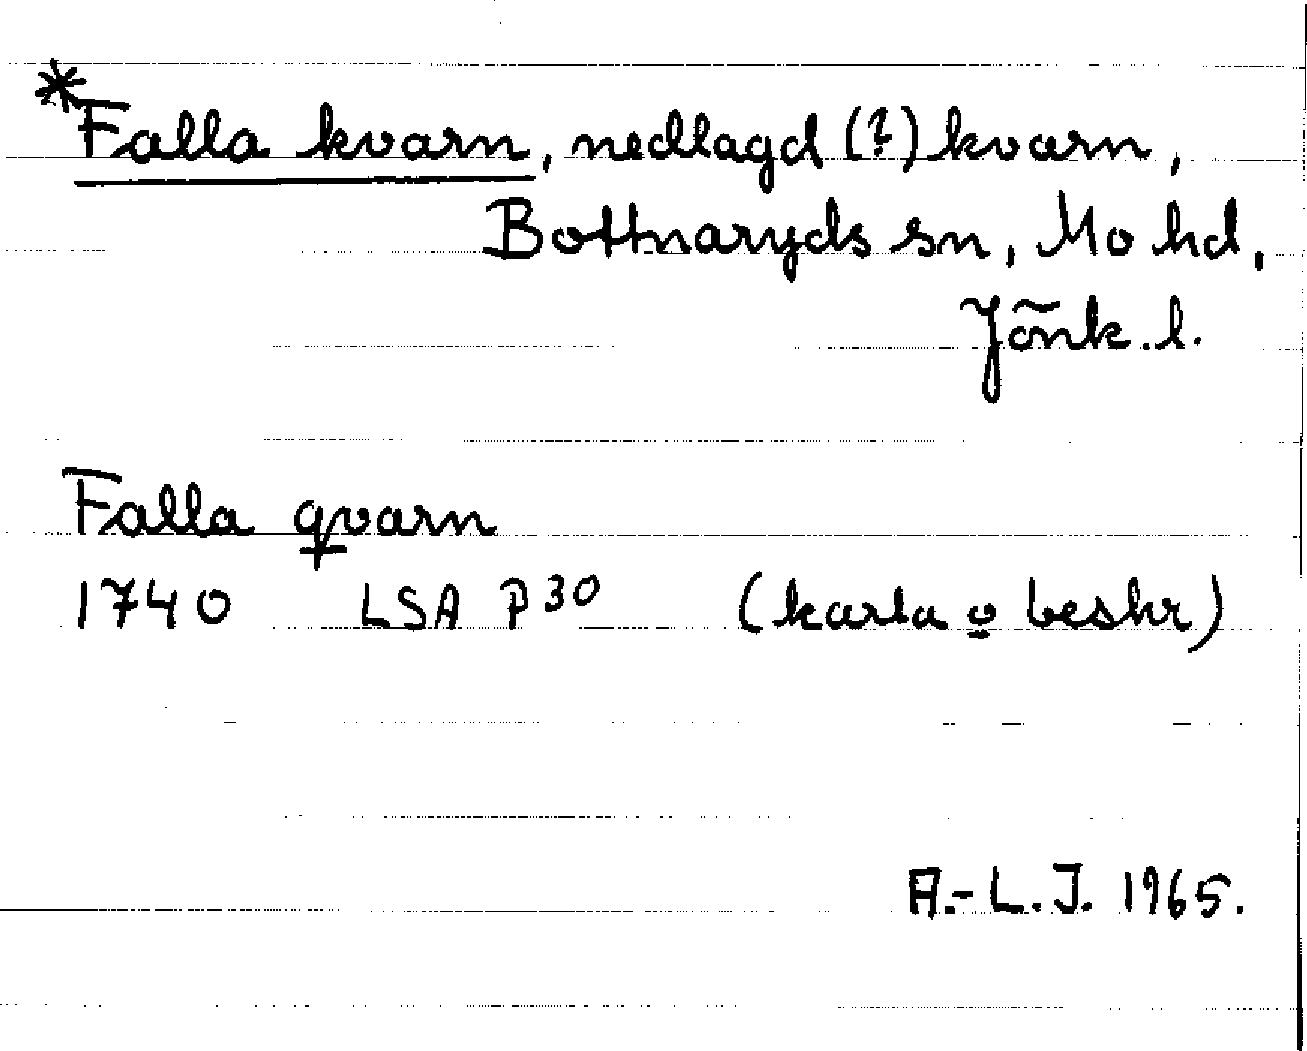 *Falla kvarn, nedlagd (?) kvarn,
Bottnaryds sn, Mo hd,
Jönk. l.
Falla qvarn
1740 LSA P30 (karta o beskr)
A.-L.J. 1965.